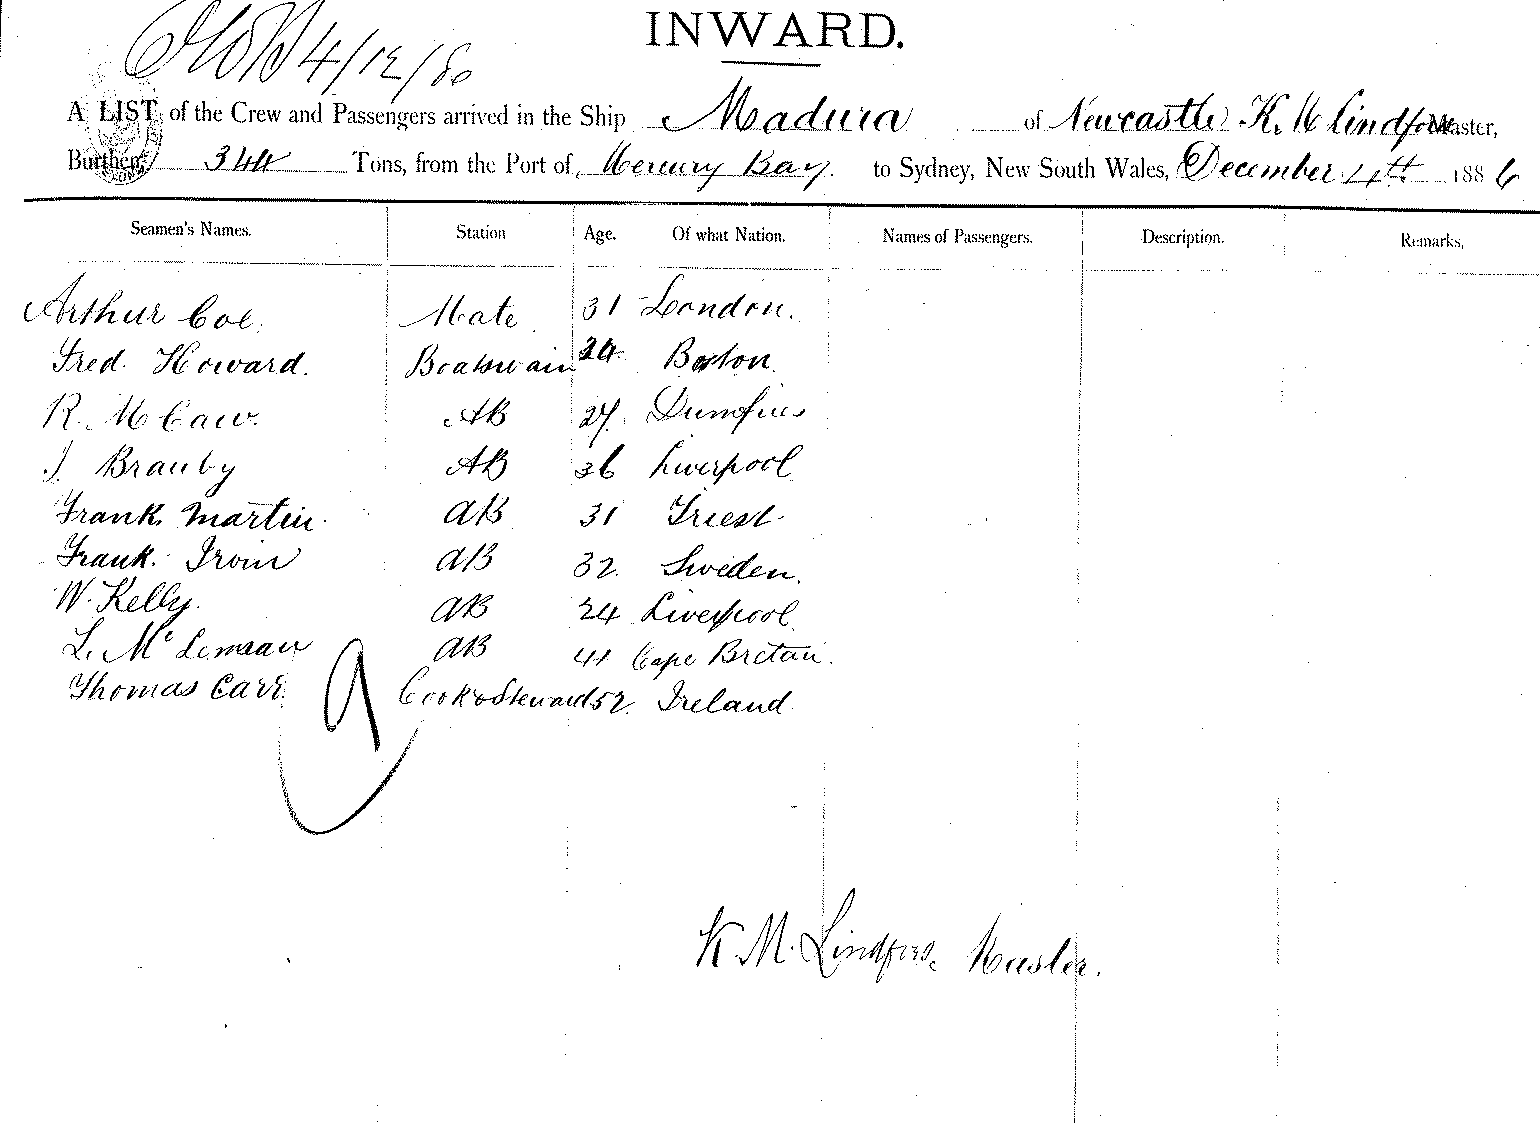 4/12/86
INWARD.
A LIST of the Crew and Passengers arrived in the Ship Madura of Newcastle K. M Lindfors Master,
Burthen, 344 Tons, from the Port of Mercury Bay. to Sydney, New South Wales, December 4th 1886
Seamen's Names. Station Age. Of what Nation. Names of Passengers. Description. Remarks,
Arthur Coe. Mate 31 London.
Fred. Howard. Boatswain 24 Boston
R. McCaw. AB 27 Dumfries
J. Brauby AB 36 Liverpool
Frank Martin. AB 31 Triest
Frank. Irvin AB 32 Sweden.
W. Kelly. AB 24 Liverpool
L. Mc AB 41 Cape Bretan.
Thomas Carr. Cook & Steward 52 Ireland
9
K. M. Lindfors. Master.